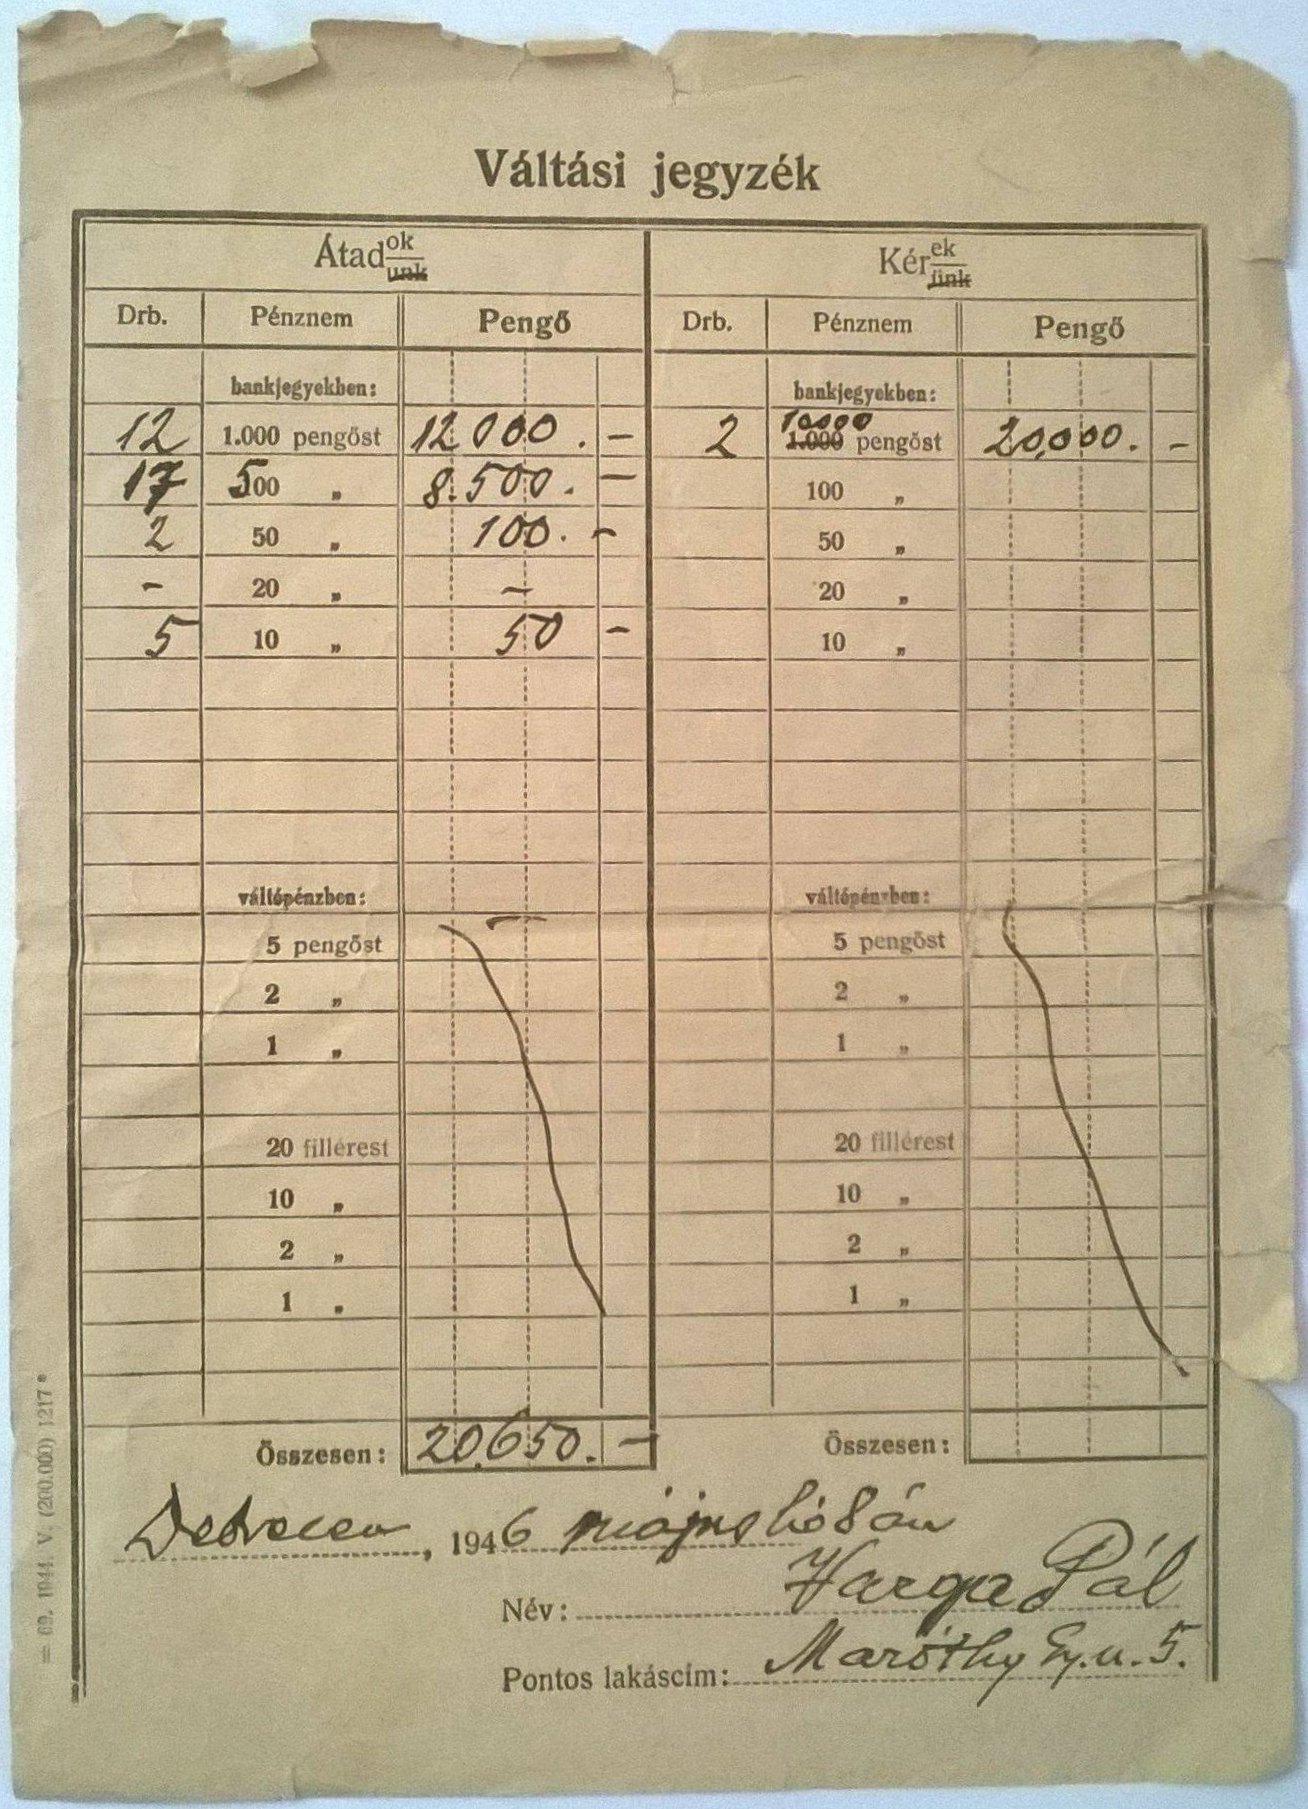 Váltási jegyzék
Átadok
unk
Kérek
ünk
Drb. Pénznem Pengő Drb. Pénznem Pengő
bankjegyekben: bankjegyekben:
12 1.000 pengőst 12000. — 2 10000 1.000 pengőst 20,000. —
17 500 „ 8.500. — 100 „
2 50 „ 100. — 50 „
- 20 „ — 20 „
5 10 „ 50 — 10 „
váltópénzben: váltópénzben:
5 pengőst — 5 pengőst
2 „ 2 „
1 „ 1 „
20 fillérest 20 fillérest
10 „ 10 „
2 „ 2 „
1 „ 1 „
Összesen: 20.650. — Összesen:
Debrecen, 1946 május hó 8 án
Név: Varga Pál
Pontos lakáscím: Maróthy Gy. u. 5.
= 69. 1944. V. (200.000) 1217 *